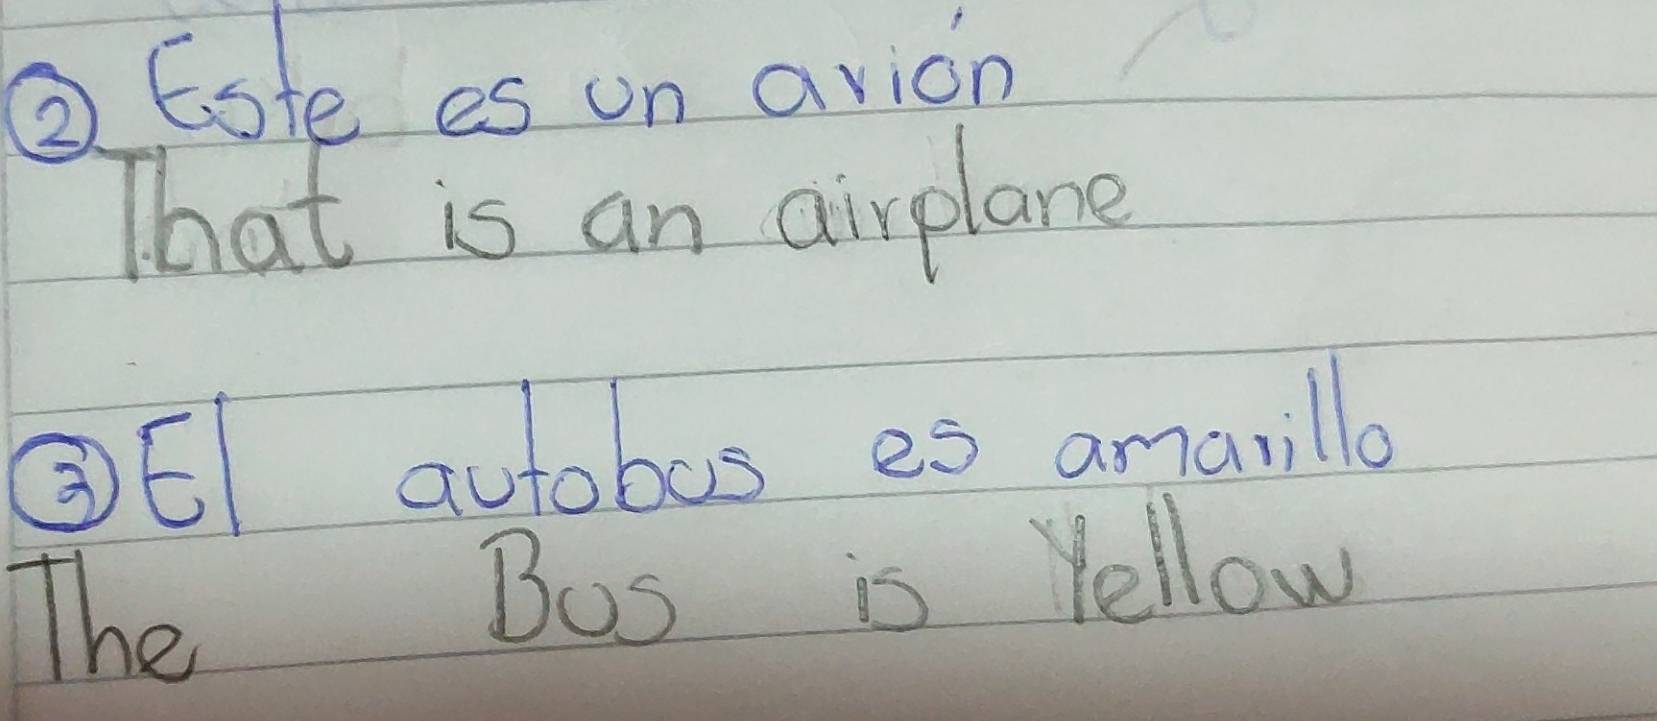 ② Este es un avión
That is an airplane
③ El autobus es amarillo
The Bus is Yellow